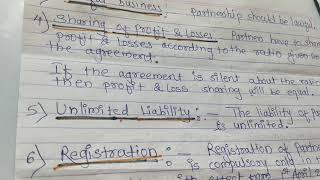 Business: Partnership should be lawful.
4) Sharing of Profit & Losses Partner have to share
profit & losses according to the ratio given
the agreement.
If the agreement is silent about the
then profit & loss sharing will be equal.
5) Unlimited Liability: - The liability of
is unlimited.
6) Registration: - Registration of
is compulsory only in
effect from 1st April